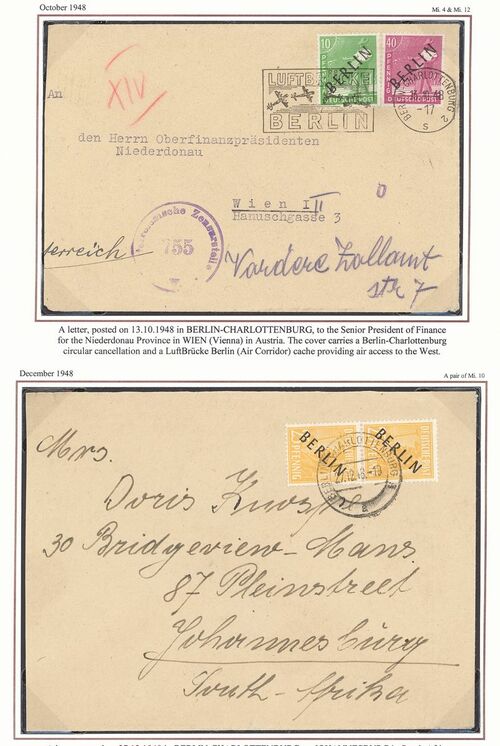 October 1948
Mi. 4 & Mi. 12
XIV
An
den Herrn Oberfinanzpräsidenten
Niederdonau
Wien III
Hanuschgasse 3
10
40
PFENNIG
DEUTSCHE POST
BERLIN
BERLIN
LUFTBRÜCKE
BERLIN
CHARLOTTENBURG 2
-17
s
Zensurstelle
755
Österreich
Vordere Zollamt
str 7
A letter, posted on 13.10.1948 in BERLIN-CHARLOTTENBURG, to the Senior President of Finance
for the Niederdonau Province in WIEN (Vienna) in Austria. The cover carries a Berlin-Charlottenburg
circular cancellation and a LuftBrücke Berlin (Air Corridor) cache providing air access to the West.
December 1948
A pair of Mi. 10
PFENNIG
DEUTSCHE POST
BERLIN
BERLIN
CHARLOTTENBURG
27.12.48
a
Mrs.
Doris Knospe
30 Bridgeview-Mans.
87 Pleinstreet
Johannesburg
South-Afrika